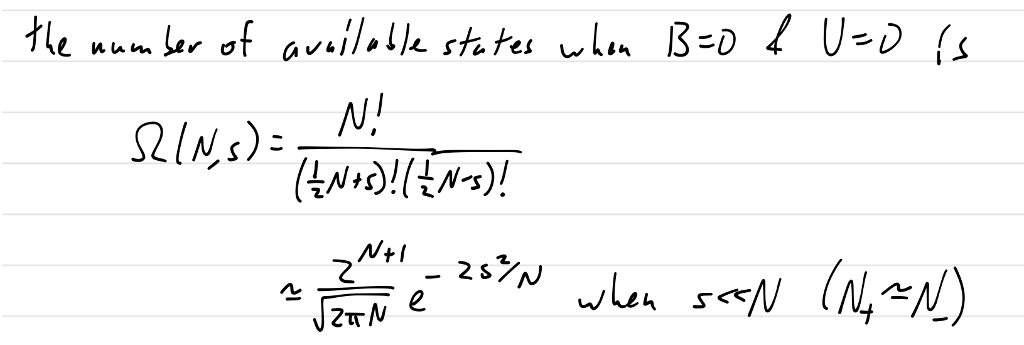 the number of available states when B=0 & U=0 is
Ω(N,s) = N! / ((½N+s)!(½N-s)!)
≃ 2^(N+1) / √(2πN) e^(-2s²/N) when s<<N (N₊≃N₋)